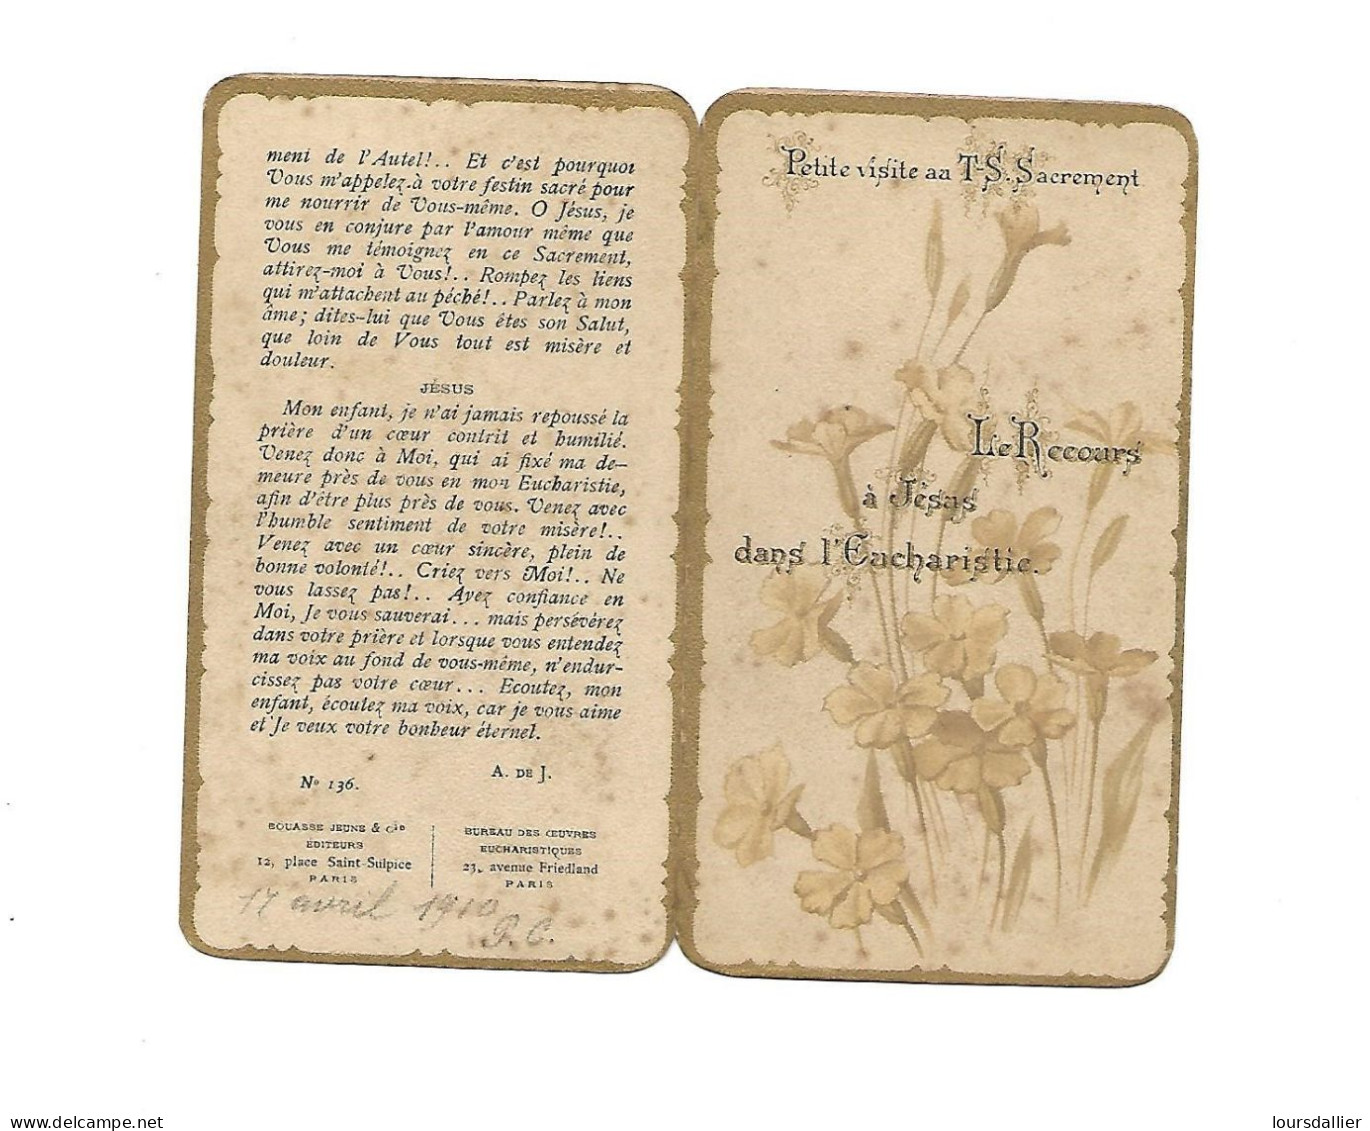 ment de l'Autel!.. Et c'est pourquoi
Vous m'appelez à votre festin sacré pour
me nourrir de Vous-même. O Jésus, je
vous en conjure par l'amour même que
Vous me témoignez en ce Sacrement,
attirez-moi à Vous!.. Rompez les liens
qui m'attachent au péché!.. Parlez à mon
âme; dites-lui que Vous êtes son Salut,
que loin de Vous tout est misère et
douleur.
JÉSUS
Mon enfant, je n'ai jamais repoussé la
prière d'un cœur contrit et humilié.
Venez donc à Moi, qui ai fixé ma de-
meure près de vous en mon Eucharistie,
afin d'être plus près de vous. Venez avec
l'humble sentiment de votre misère!..
Venez avec un cœur sincère, plein de
bonne volonté!.. Criez vers Moi!.. Ne
vous lassez pas!.. Ayez confiance en
Moi, Je vous sauverai... mais persévérez
dans votre prière et lorsque vous entendez
ma voix au fond de vous-même, n'endur-
cissez pas votre cœur... Ecoutez, mon
enfant, écoutez ma voix, car je vous aime
et Je veux votre bonheur éternel.
A. DE J.
Nº 136.
BOUASSE JEUNE & Cie
ÉDITEURS
12, place Saint-Sulpice
PARIS
BUREAU DES ŒUVRES
EUCHARISTIQUES
23, avenue Friedland
PARIS
17 avril 1910
P. C.
Petite visite au T-S. Sacrement
Le Recours
à Jésus
dans l'Eucharistie.
delcampe.net
loursdallier